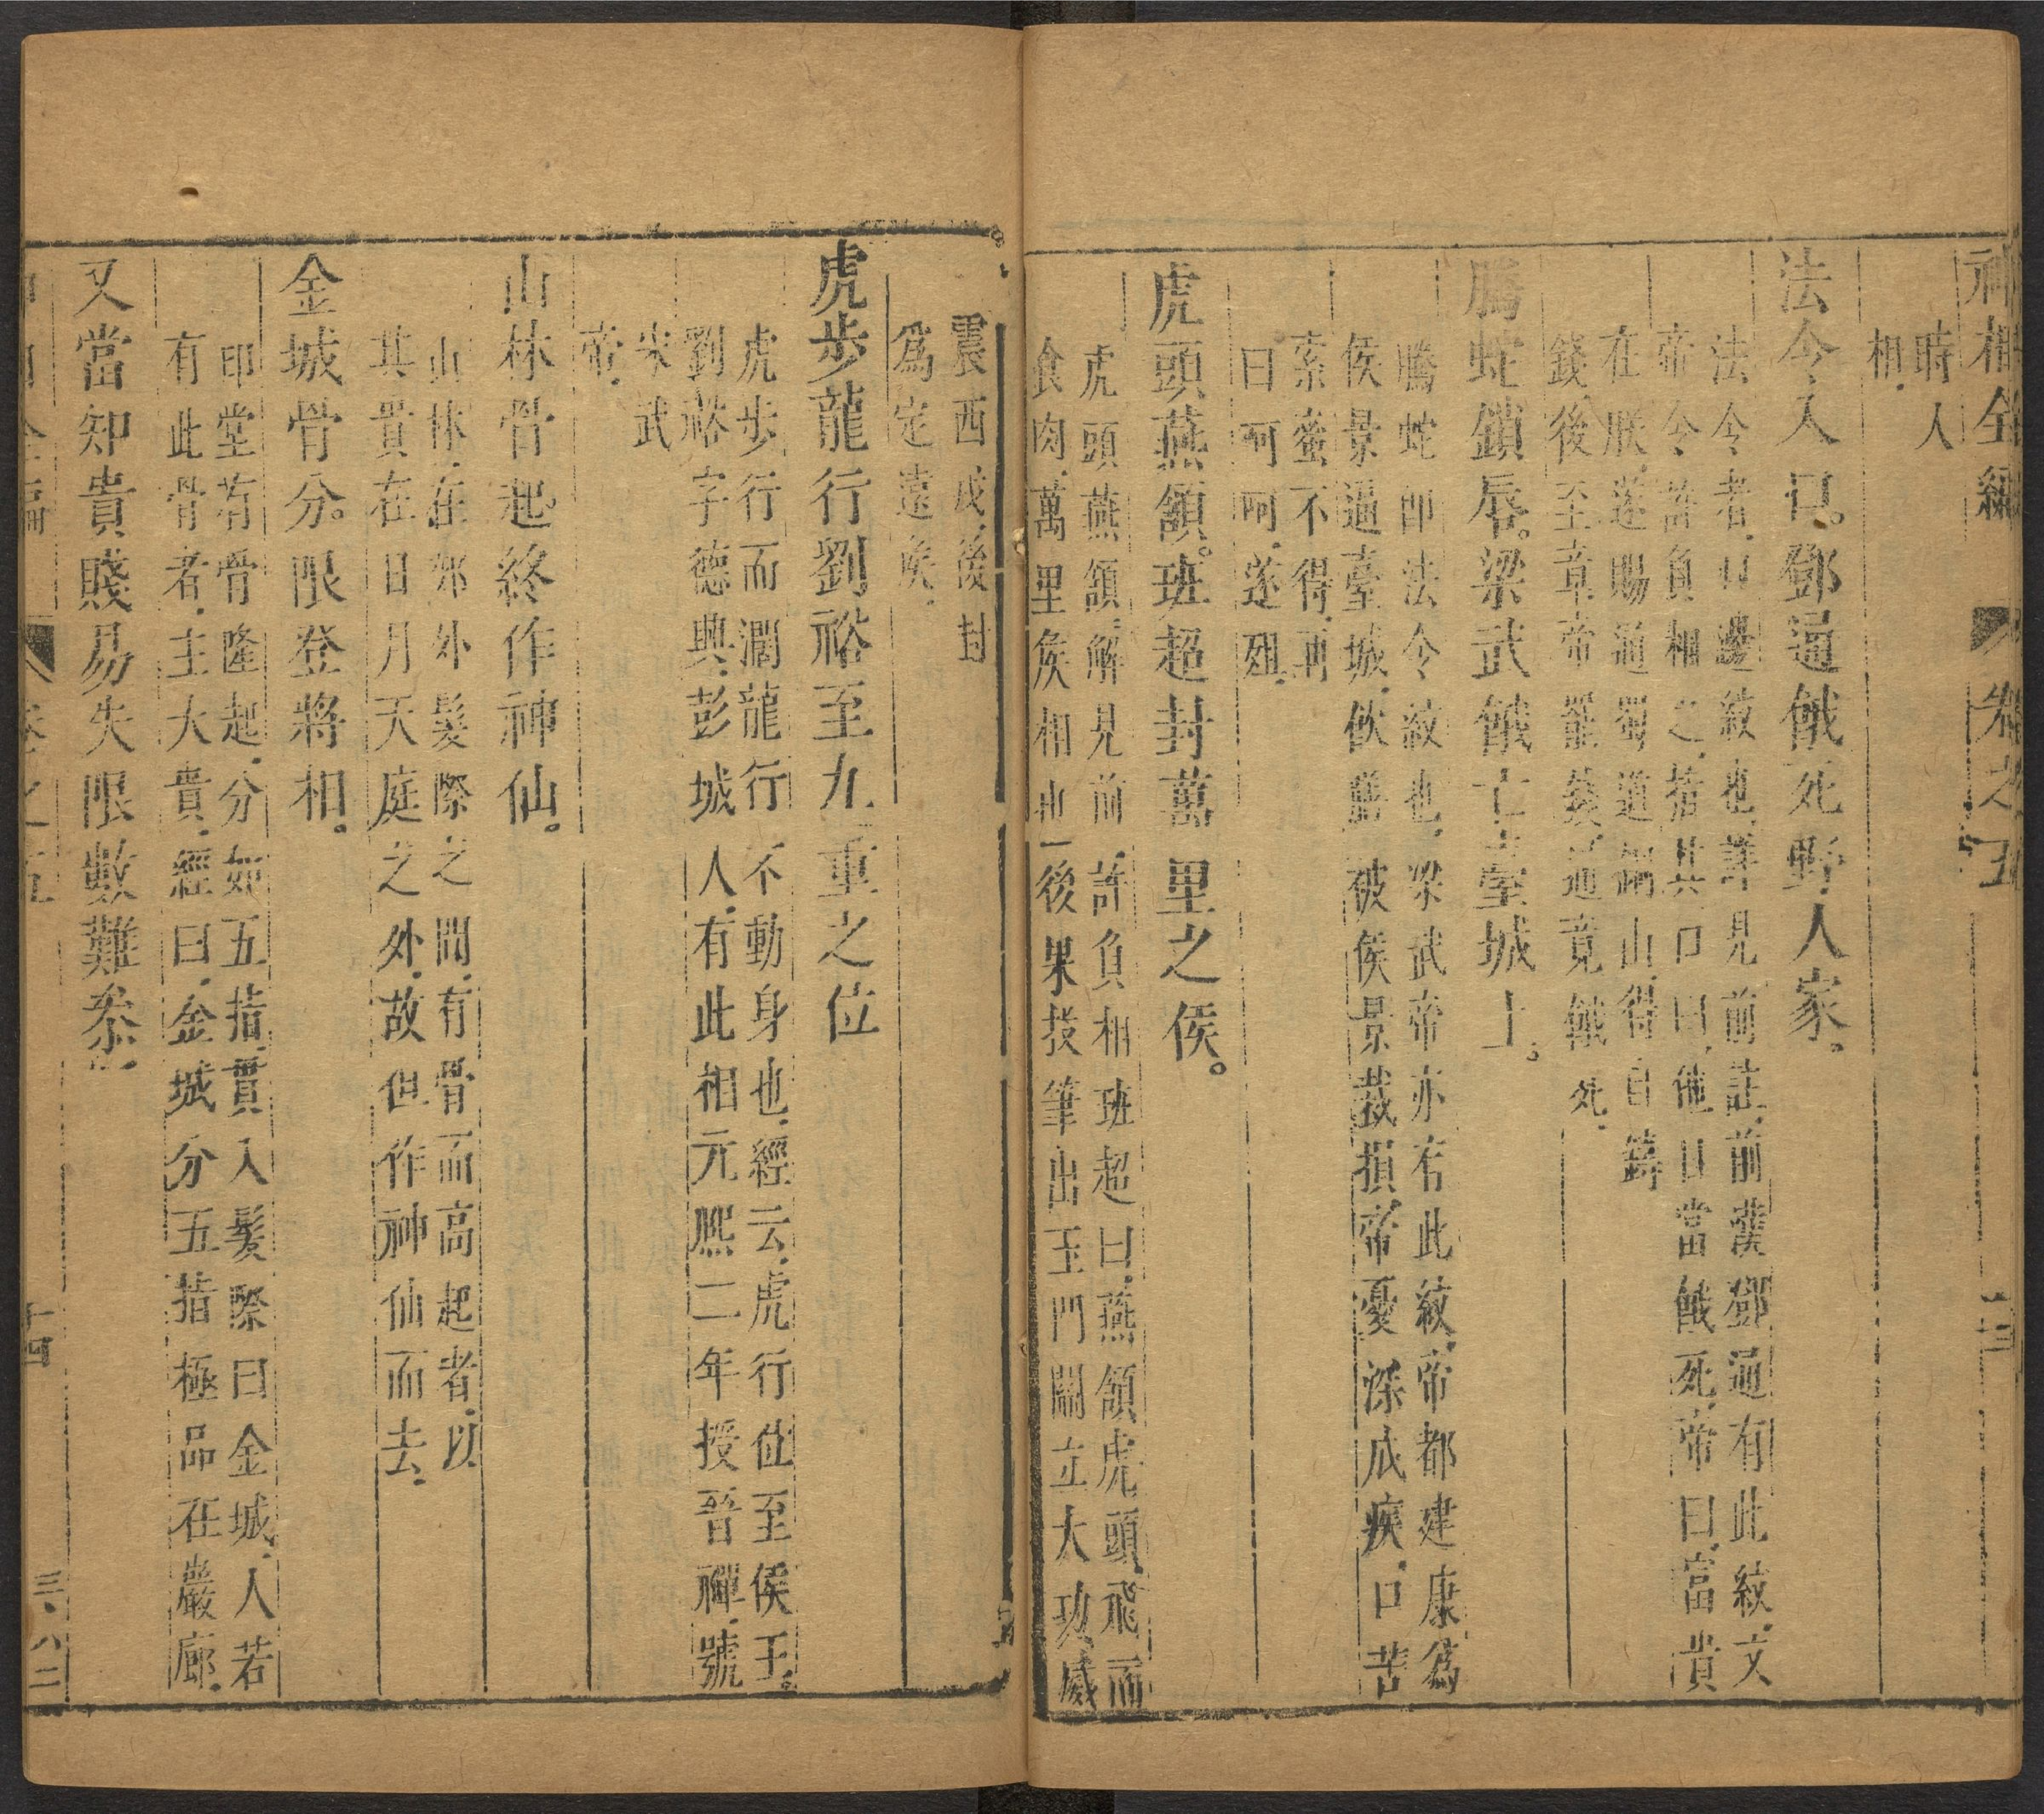 神相全編 卷之五 十三
時人
相
法令入口。鄧通餓死野人家。
法令者、口邊紋也、詳見前註、前漢鄧通有此紋、文
帝令許負相之、指其口曰、他日當餓死、帝曰、富貴
在朕、遂賜通蜀道銅山、得自鑄
錢、後至章帝罷錢、通竟餓死、
騰蛇鎖唇。梁武餓亡臺城上。
騰蛇卽法令紋也、梁武帝亦有此紋、帝都建康爲
侯景逼臺城、飲膳被侯景裁損、帝憂深成疾、口苦
索蜜不得、再
曰呵呵、遂殂、
虎頭燕頷。班超封萬里之侯。
虎頭燕頷、解見前、許負相班超曰、燕頷虎頭、飛而
食肉、萬里侯相也、後果投筆出玉門關立大功、威
震西戎、後封
爲定遠侯、
虎步龍行劉裕至九重之位
虎步行而濶龍行不動身也、經云、虎行位至侯王。
劉裕字德輿、彭城人、有此相元熙二年授晉禪、號
宋武
帝、
山林骨起終作神仙。
山林、在郊外髮際之間、有骨而高起者、以
其貴在日月天庭之外、故但作神仙而去、
金城骨分。限登將相。
印堂有骨隆起、分如五指、貫入髮際曰金城、人若
有此骨者、主大貴、經曰、金城分五指極品在巖廊、
又當知貴賤易失限數難叅、
卷之五 十四 三、八二